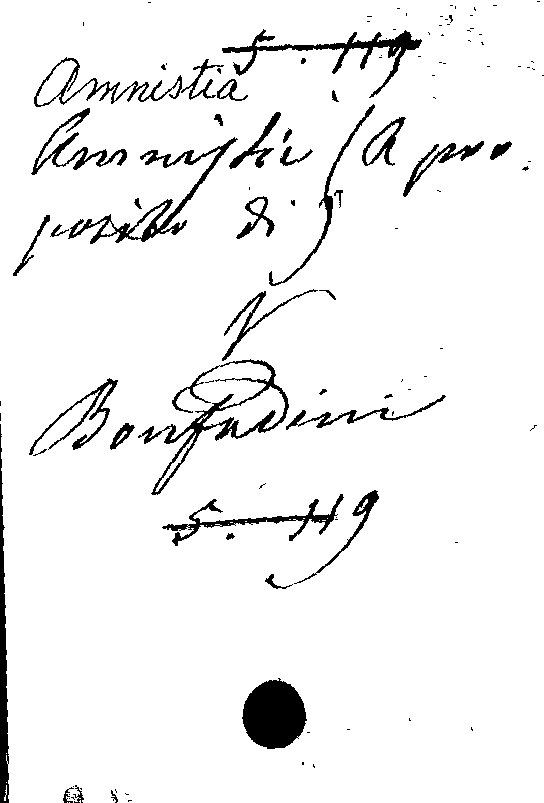 5. 119
Amnistia
Amnistia (A pro-
posito di)
V
Bonfadini
5. 119